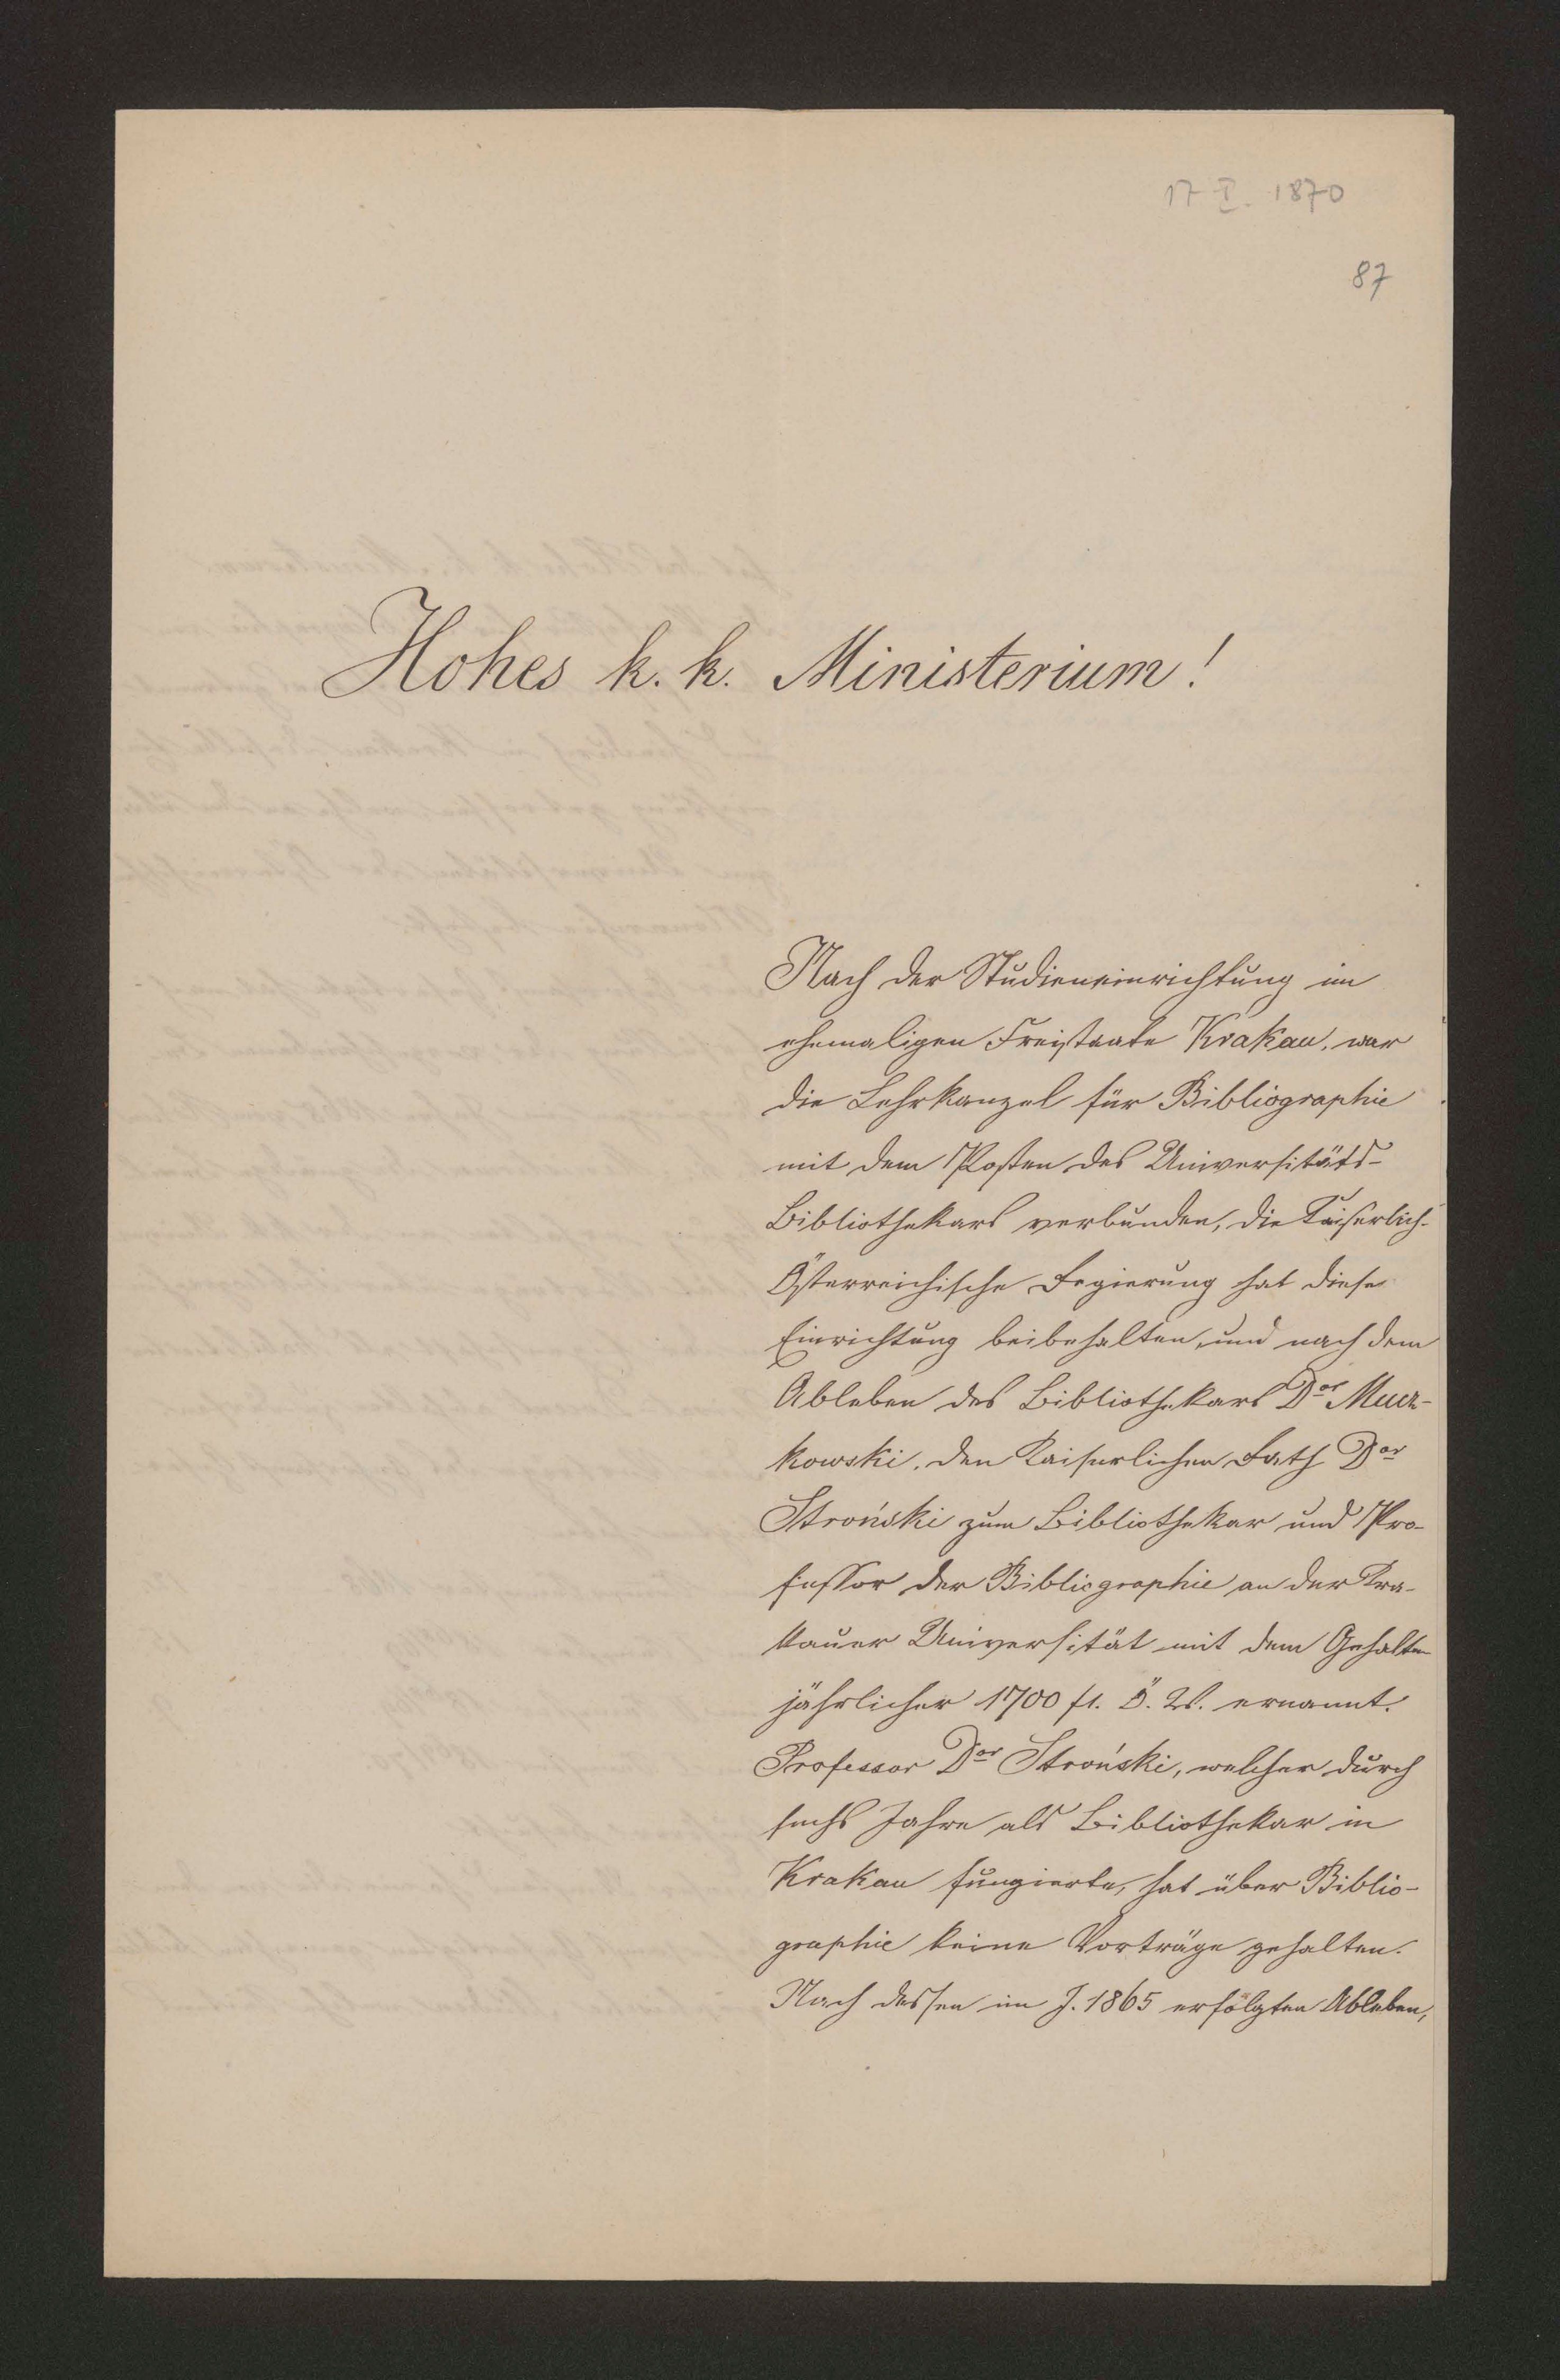 17 I. 1870
87
Hohes k. k. Ministerium!
Nach der Studieneinrichtung im
ehemaligen Freistaate Krakau, war
die Lehrkanzel für Bibliographie
mit dem Posten des Universitäts-
Bibliothekars verbunden, die Kaiserlich-
Österreichische Regierung hat diese
Einrichtung beibehalten, und nach dem
Ableben des Bibliothekars Dor Mucz-
kowski, den Kaiserlichen Rath Dor
Stroński zum Bibliothekar und Pro-
fessor der Bibliographie an der Kra-
kauer Universität mit dem Gehalte
jährlicher 1700 fl. Ö. W. ernannt.
Professor Dor Stroński, welcher durch
sechs Jahre als Bibliothekar in
Krakau fungierte, hat über Biblio-
graphie keine Vorträge gehalten.
Nach dessen im J. 1865 erfolgten Ableben,